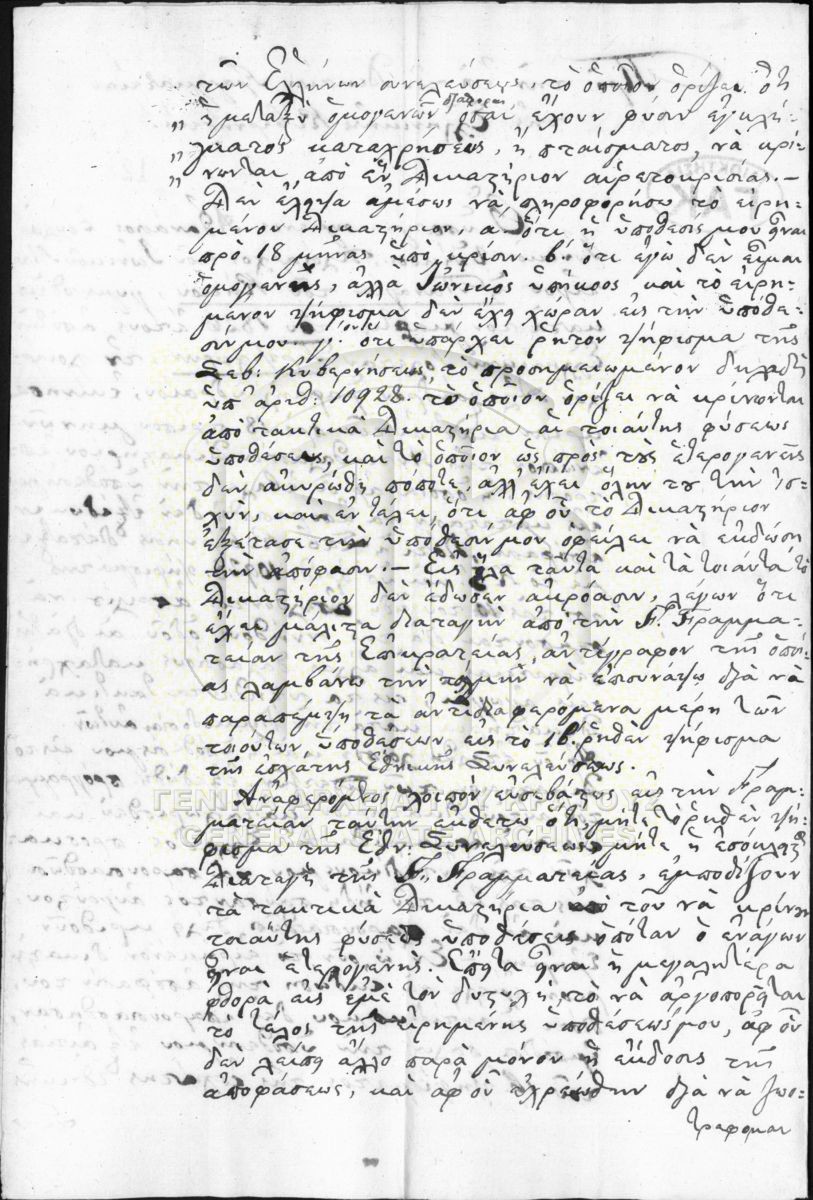 τῶν Ἑλλήνων συνελεύσεως, τὸ ὁποῖον ὁρίζει ὅτι
„ ἡ μεταξὺ ὁμογενῶν διαφοραὶ ὅσαι ἔχουν φύσιν ἐγκλή-
„ ματος καταχρήσεως, ἢ πταίσματος, νὰ κρί-
„ νωνται ἀπὸ ἓν Δικαστήριον αἱρετοκρισίας. –
Δὲν ἔλειψα ἀμέσως νὰ πληροφορήσω τὸ εἰρη-
μένον Δικαστήριον, α. ὅτι ἡ ὑπόθεσίς μου ἦναι
πρὸ 18 μῆνας ὑπὸ κρίσιν. β. ὅτι ἐγὼ δὲν εἶμαι
ὁμογενὴς, ἀλλὰ Ἰωνικὸς ὑπήκοος καὶ τὸ εἰρη-
μένον ψήφισμα δὲν ἔχει χώραν εἰς τὴν ὑπόθε-
σίν μου γ. ὅτι ὑπάρχει ῥητὸν ψήφισμα τῆς
Σεβ: Κυβερνήσεως, τὸ προσημειωμένον δηλαδὴ
ὑπ' ἀριθ: 10928. τὸ ὁποῖον ὁρίζει νὰ κρίνωνται
ἀπὸ τακτικὰ Δικαστήρια αἱ τοιαύτης φύσεως
ὑποθέσεις, καὶ τὸ ὁποῖον ὡς πρὸς τοὺς ἑτερογενεῖς
δὲν ἀκυρώθη πώποτε, ἀλλ' ἔχει ὅλην του τὴν ἰσ-
χύν, καὶ ἐν τέλει, ὅτι ἀφ' οὗ τὸ Δικαστήριον
ἐξέτασε τὴν ὑπόθεσίν μου ὀφείλει νὰ ἐκδώσῃ
τὴν ἀπόφασιν. – Εἰς ὅλα ταῦτα καὶ τὰ τοιαῦτα τὸ
Δικαστήριον δὲν ἔδωσεν ἀκρόασιν, λέγων ὅτι
ἔχει μάλιστα διαταγὴν ἀπὸ τὴν Γ. Γραμμα-
τείαν τῆς Ἐπικρατείας, ἀντίγραφον τῆς ὁποί-
ας λαμβάνω τὴν τόλμην νὰ ἐπισυνάψω διὰ νὰ
παραπέμψῃ τὰ ἀντιδιαφερόμενα μέρη τῶν
τοιούτων ὑποθέσεων εἰς τὸ ΙΒ. ῥηθὲν ψήφισμα
τῆς ἐσχάτης Ἐθνικῆς Συνελεύσεως.
Ἀναφερόμενος λοιπὸν εὐσεβάστως εἰς τὴν Γραμ-
ματείαν ταύτην ἐκθέτω ὅτι μήτε τὸ ῥηθὲν ψή-
φισμα τῆς Ἐθν: Συνελεύσεως μήτε ἡ ἐσώκλειστος
Διαταγὴ τῆς Γ. Γραμματείας, ἐμποδίζουν
τὰ τακτικὰ Δικαστήρια ἀπὸ τοῦ νὰ κρίνουν
τοιαύτης φύσεως ὑποθέσεις ὁπόταν ὁ ἐνάγων
ἦναι ἑτερογενής. Ἔπειτα ἦναι ἡ μεγαλητέρα
φθορὰ εἰς ἐμὲ τὸν δυστυχῆ τὸ νὰ ἀργοπορῆται
τὸ τέλος τῆς εἰρημένης ὑποθέσεώς μου, ἀφ' οὗ
δὲν λείπει ἄλλο παρὰ μόνον ἡ ἔκδοσις τῆς
ἀποφάσεως, καὶ ἀφ' οὗ ἐχρεώθην διὰ νὰ ζωο-
τρέφομαι
ΓΕΝΙΚΑ ΑΡΧΕΙΑ ΤΟΥ ΚΡΑΤΟΥΣ
GENERAL STATE ARCHIVES
ΓΑΚ